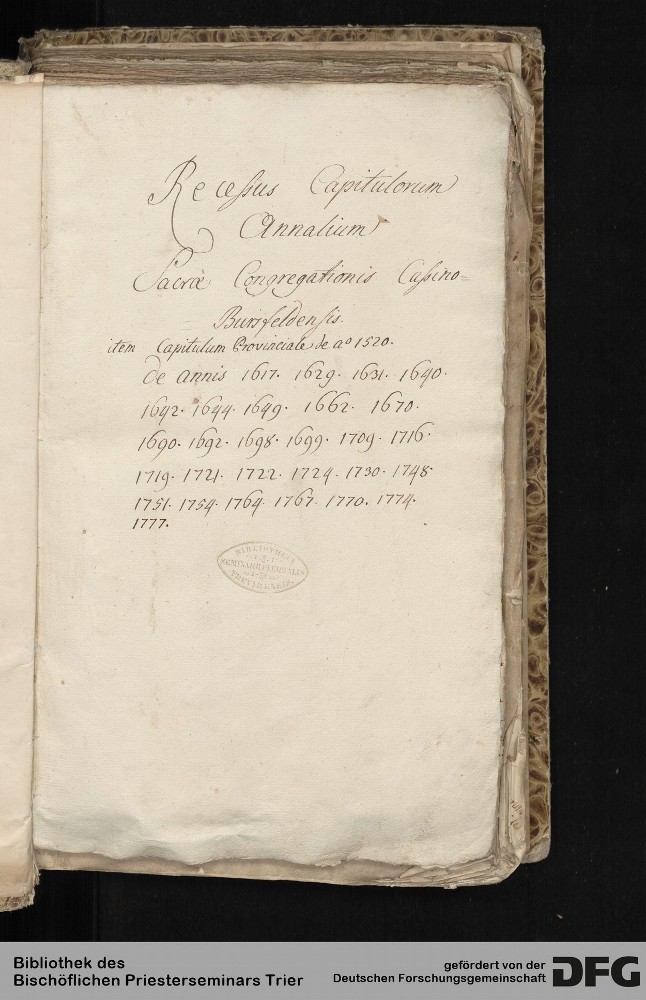 Recessus Capitulorum
Annalium
Sacræ Congregationis Cassino=
Bursfeldensis.
item Capitulum Provinciale de aº 1520.
de annis 1617. 1629. 1631. 1640.
1642. 1644. 1649. 1662. 1670.
1690. 1692. 1698. 1699. 1709. 1716.
1719. 1721. 1722. 1724. 1730. 1748.
1751. 1754. 1764. 1767. 1770. 1774.
1777.
BIBLIOTHECA
SEMINARII CLEMENTIN
TREVIRENSIS
Bibliothek des
Bischöflichen Priesterseminars Trier
gefördert von der
Deutschen Forschungsgemeinschaft
DFG